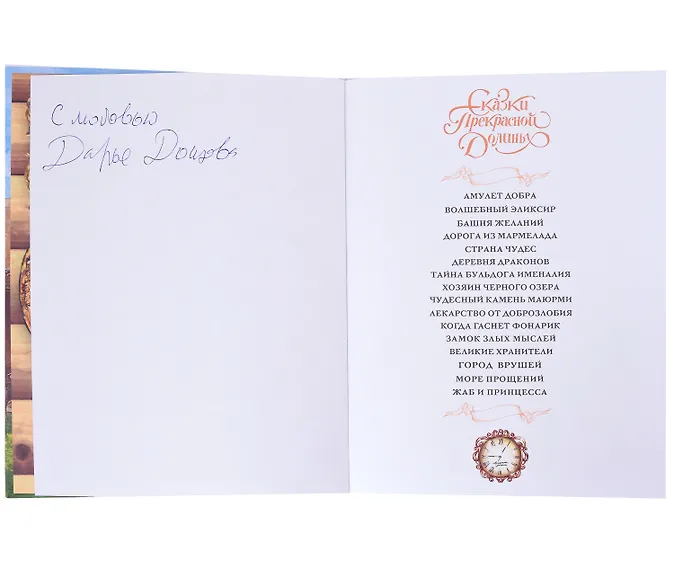 С любовью
Дарья Донцова
Сказки
Прекрасной
Долины
АМУЛЕТ ДОБРА
ВОЛШЕБНЫЙ ЭЛИКСИР
БАШНЯ ЖЕЛАНИЙ
ДОРОГА ИЗ МАРМЕЛАДА
СТРАНА ЧУДЕС
ДЕРЕВНЯ ДРАКОНОВ
ТАЙНА БУЛЬДОГА ИМЕНАЛИЯ
ХОЗЯИН ЧЕРНОГО ОЗЕРА
ЧУДЕСНЫЙ КАМЕНЬ МАЮРМИ
ЛЕКАРСТВО ОТ ДОБРОЗЛОБИЯ
КОГДА ГАСНЕТ ФОНАРИК
ЗАМОК ЗЛЫХ МЫСЛЕЙ
ВЕЛИКИЕ ХРАНИТЕЛИ
ГОРОД ВРУШЕЙ
МОРЕ ПРОЩЕНИЙ
ЖАБ И ПРИНЦЕССА